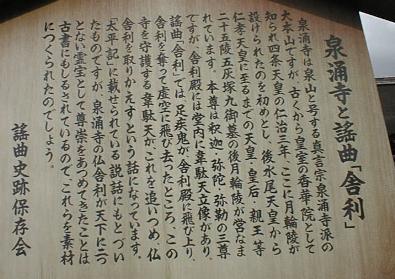 泉涌寺と謡曲「舎利」
泉涌寺は泉山と号する真言宗泉涌寺派の
大本山ですが、古くから皇室の香華院として
知られ四条天皇の仁治三年、ここに月輪陵が
設けられたのを初めとし、後水尾天皇から
仁孝天皇に至るまでの天皇・皇后・親王等
二十五陵五灰塚九御墓の後月輪陵が営なま
れています。本尊は釈迦・弥陀・弥勒の三尊
ですが、舎利殿には堂内に韋駄天立像があり、
謡曲「舎利」では、足疾鬼が舎利殿に飛び上り、
舎利を奪って虚空に飛び去ったところ、この
寺を守護する韋駄天が、これを追いつめ、仏
舎利を取りかえすという話になっています。
「太平記」に載せられている説話にもとづい
たものですが、泉涌寺の仏舎利が天下に二つ
とない霊宝として尊崇をあつめてきたことは
古書にもしるされているので、これらを素材
につくられたのでしょう。
謡曲史跡保存会